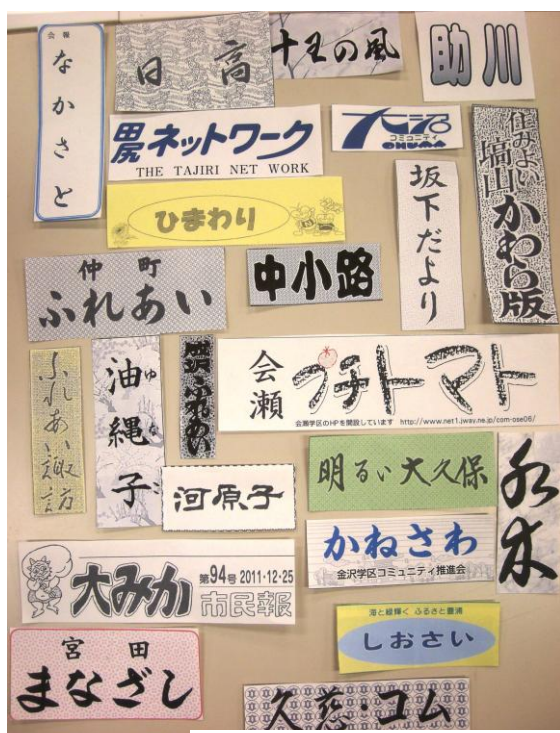 会報
なかさと
日高
十王の風
助川
田尻ネットワーク
THE TAJIRI NET WORK
大沼
コミュニティ
OHUMA
住みよい
塙山かわら版
ひまわり
坂下だより
仲町
ふれあい
中小路
ふれあい諏訪
油縄子
ゆ
な
ご
ふれあい
会瀬
プチトマト
会瀬学区のHPを開設しています http://www.net1.jway.ne.jp/com-ose06/
河原子
明るい大久保
水木
かねさわ
金沢学区コミュニティ推進会
大みか
第94号 2011・12・25
市民報
海と緑輝く ふるさと豊浦
しおさい
宮田
まなざし
久慈・コム